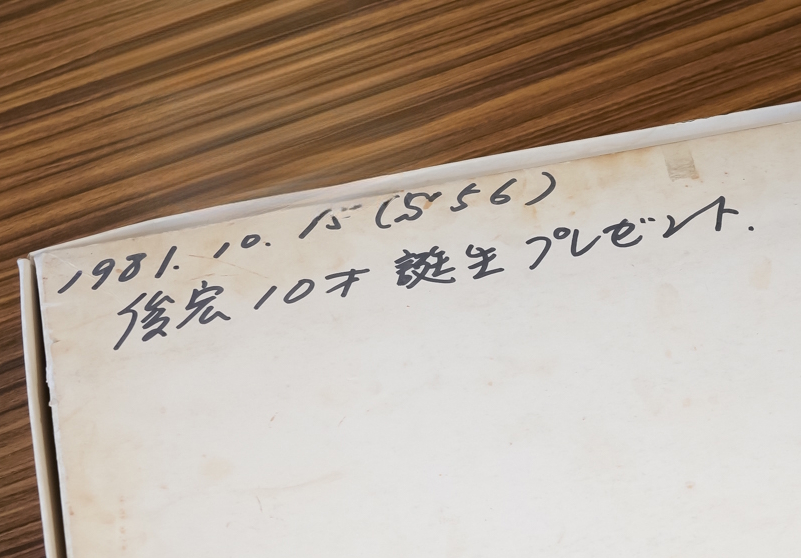 1981. 10. 15 (S56)
俊宏 10才 誕生プレゼント.